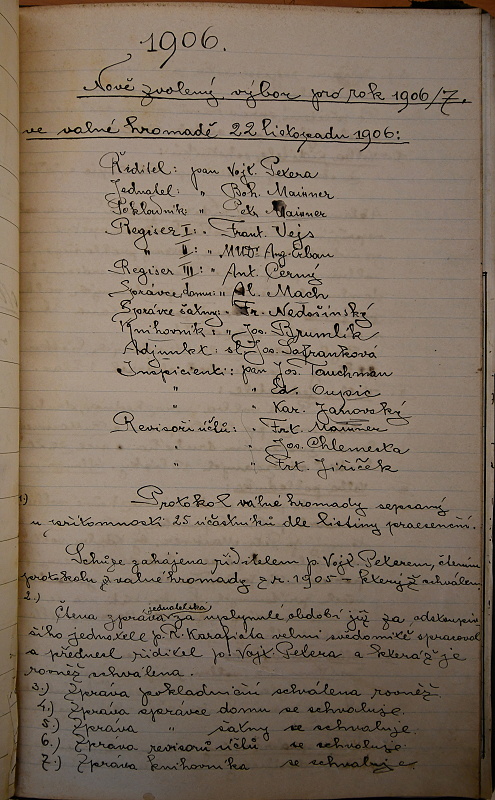 1906.
Nově zvolený výbor pro rok 1906/7.
ve valné hromadě 22 listopadu 1906:
Ředitel: pan Vojt. Pexera
Jednatel: " Boh. Maixner
Pokladník: " Petr Maixner
Regiser I: " Frant. Vejs
" II: " MUDr Aug. Urban
Regiser III: " Ant. Černý
Správce domu: " Al. Mach
Správce šatny: " Fr. Nedošinský
Knihovník: " Jos. Brumlik
Adjunkt: sl. Jos. Šafránková
Inspicienti: pan Jos. Tauchman
" " Ed. Cupic
" " Kar. Janovský
Revisoři účtů: " Frt. Maixner
" " Jos. Chlemeska
" " Frt. Jiříček
1.) Protokol valné hromady sepsaný
u přítomnosti 25 účastníků dle listiny praesenční.
Schůze zahájena ředitelem p. Vojt. Pexerou, čtením
protokolu z valné hromady z r. 1905 – kterýž schválen.
2.)
Čtena zpráva jednatelská za uplynulé období již za odstoupiv
šího jednatele p. R. Karafiáta velmi svědomitě spracoval
a přednesl ředitel p. Vojt. Pexera a kteráž je
rovněž schválena.
3.) Zpráva pokladniční schválena rovněž.
4.) Zpráva správce domu se schvaluje.
5.) Zpráva " šatny se schvaluje.
6.) Zpráva revisorů účtů se schvaluje.
7.) Zpráva knihovníka se schvaluje.